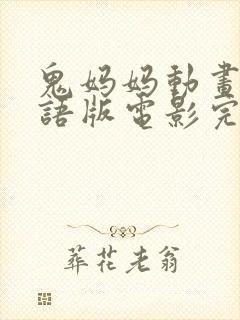 鬼妈妈動畫
語版電影完
葬花老翁